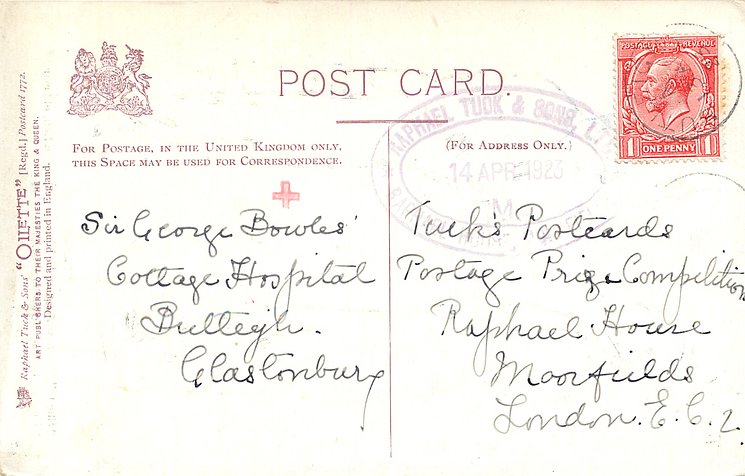 POST CARD.
POSTAGE REVENUE
1 ONE PENNY 1
RAPHAEL TUCK & SONS, L
14 APR 1923
M
FOR POSTAGE, IN THE UNITED KINGDOM ONLY,
THIS SPACE MAY BE USED FOR CORRESPONDENCE.
(FOR ADDRESS ONLY.)
Sir George Bowles'
Cottage Hospital
Butleigh.
Glastonbury
Tuck's Postcards
Postage Prize Competition
Raphael House
Moorfields
London. E.C.2.
Raphael Tuck & Sons' "OILETTE" [Regd.] Postcard 1772.
ART PUBLISHERS TO THEIR MAJESTIES THE KING & QUEEN.
Designed and printed in England.